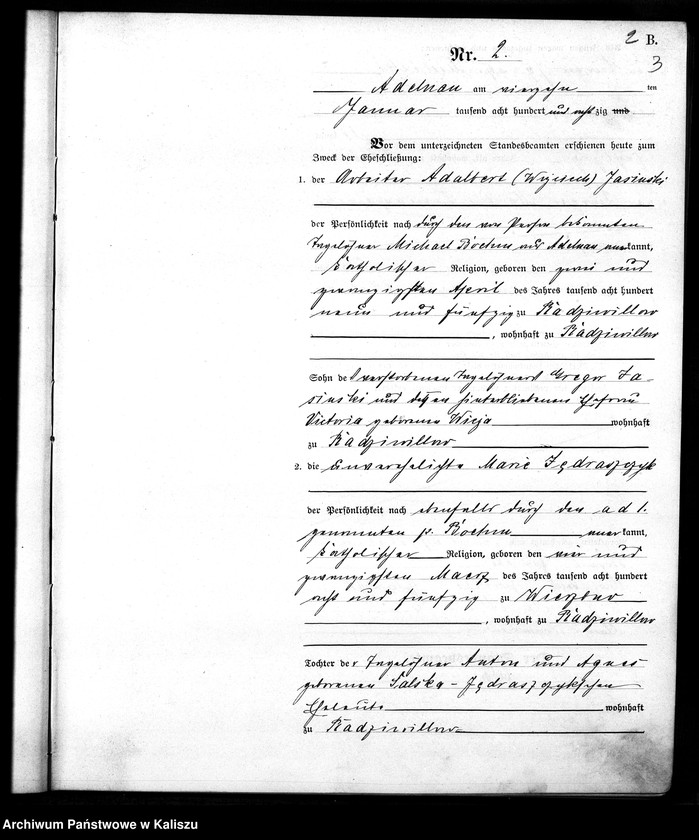 2 B.
3
Nr. 2.
Adelnau am vierzehn ten
Januar tausend acht hundert und acht zig und
Vor dem unterzeichneten Standesbeamten erschienen heute zum
Zweck der Eheschließung:
1. der Arbeiter Adalbert (Wojciech) Jasinski
der Persönlichkeit nach durch den von Person bekannten
Tagelöhner Michael aus Adelnau anerkannt,
katholischer Religion, geboren den zwei und
zwanzigsten April des Jahres tausend acht hundert
neun und fünfzig zu Radziwillow
, wohnhaft zu Radziwillow
Sohn des verstorbenen Tagelöhners Gregor Ja-
sinski und dessen hinterbliebenen Ehefrau
Victoria geborene wohnhaft
zu Radziwillow
2. die unverehelichte Marie Jędraszczyk
der Persönlichkeit nach ebenfalls durch den ad 1.
genannten p. anerkannt,
katholischer Religion, geboren den vier und
zwanzigsten Maerz des Jahres tausend acht hundert
acht und fünfzig zu
, wohnhaft zu Radziwillow
Tochter der Tagelöhner Anton und Agnes
geborenen Salska-Jędraszczykschen
Eheleute wohnhaft
zu Radziwillow
Archiwum Państwowe w Kaliszu